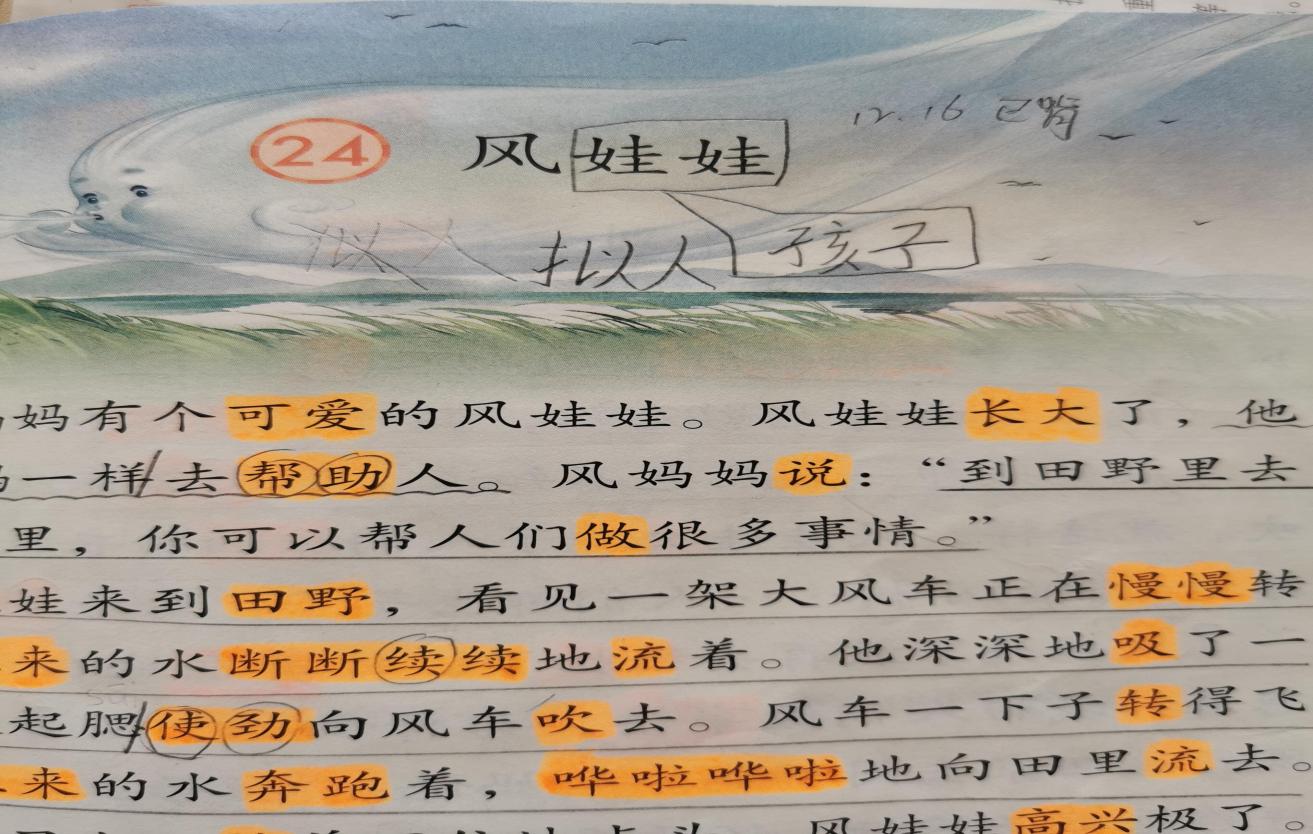 12.16 已背
24 风娃娃
拟人 拟人 孩子
妈有个可爱的风娃娃。风娃娃长大了，他
一样去帮助人。风妈妈说：“到田野里去
里，你可以帮人们做很多事情。”
娃来到田野，看见一架大风车正在慢慢转
来的水断断续续地流着。他深深地吸了一
起腮使劲向风车吹去。风车一下子转得飞
来的水奔跑着，哗啦哗啦地向田里流去。
风娃娃高兴极了。